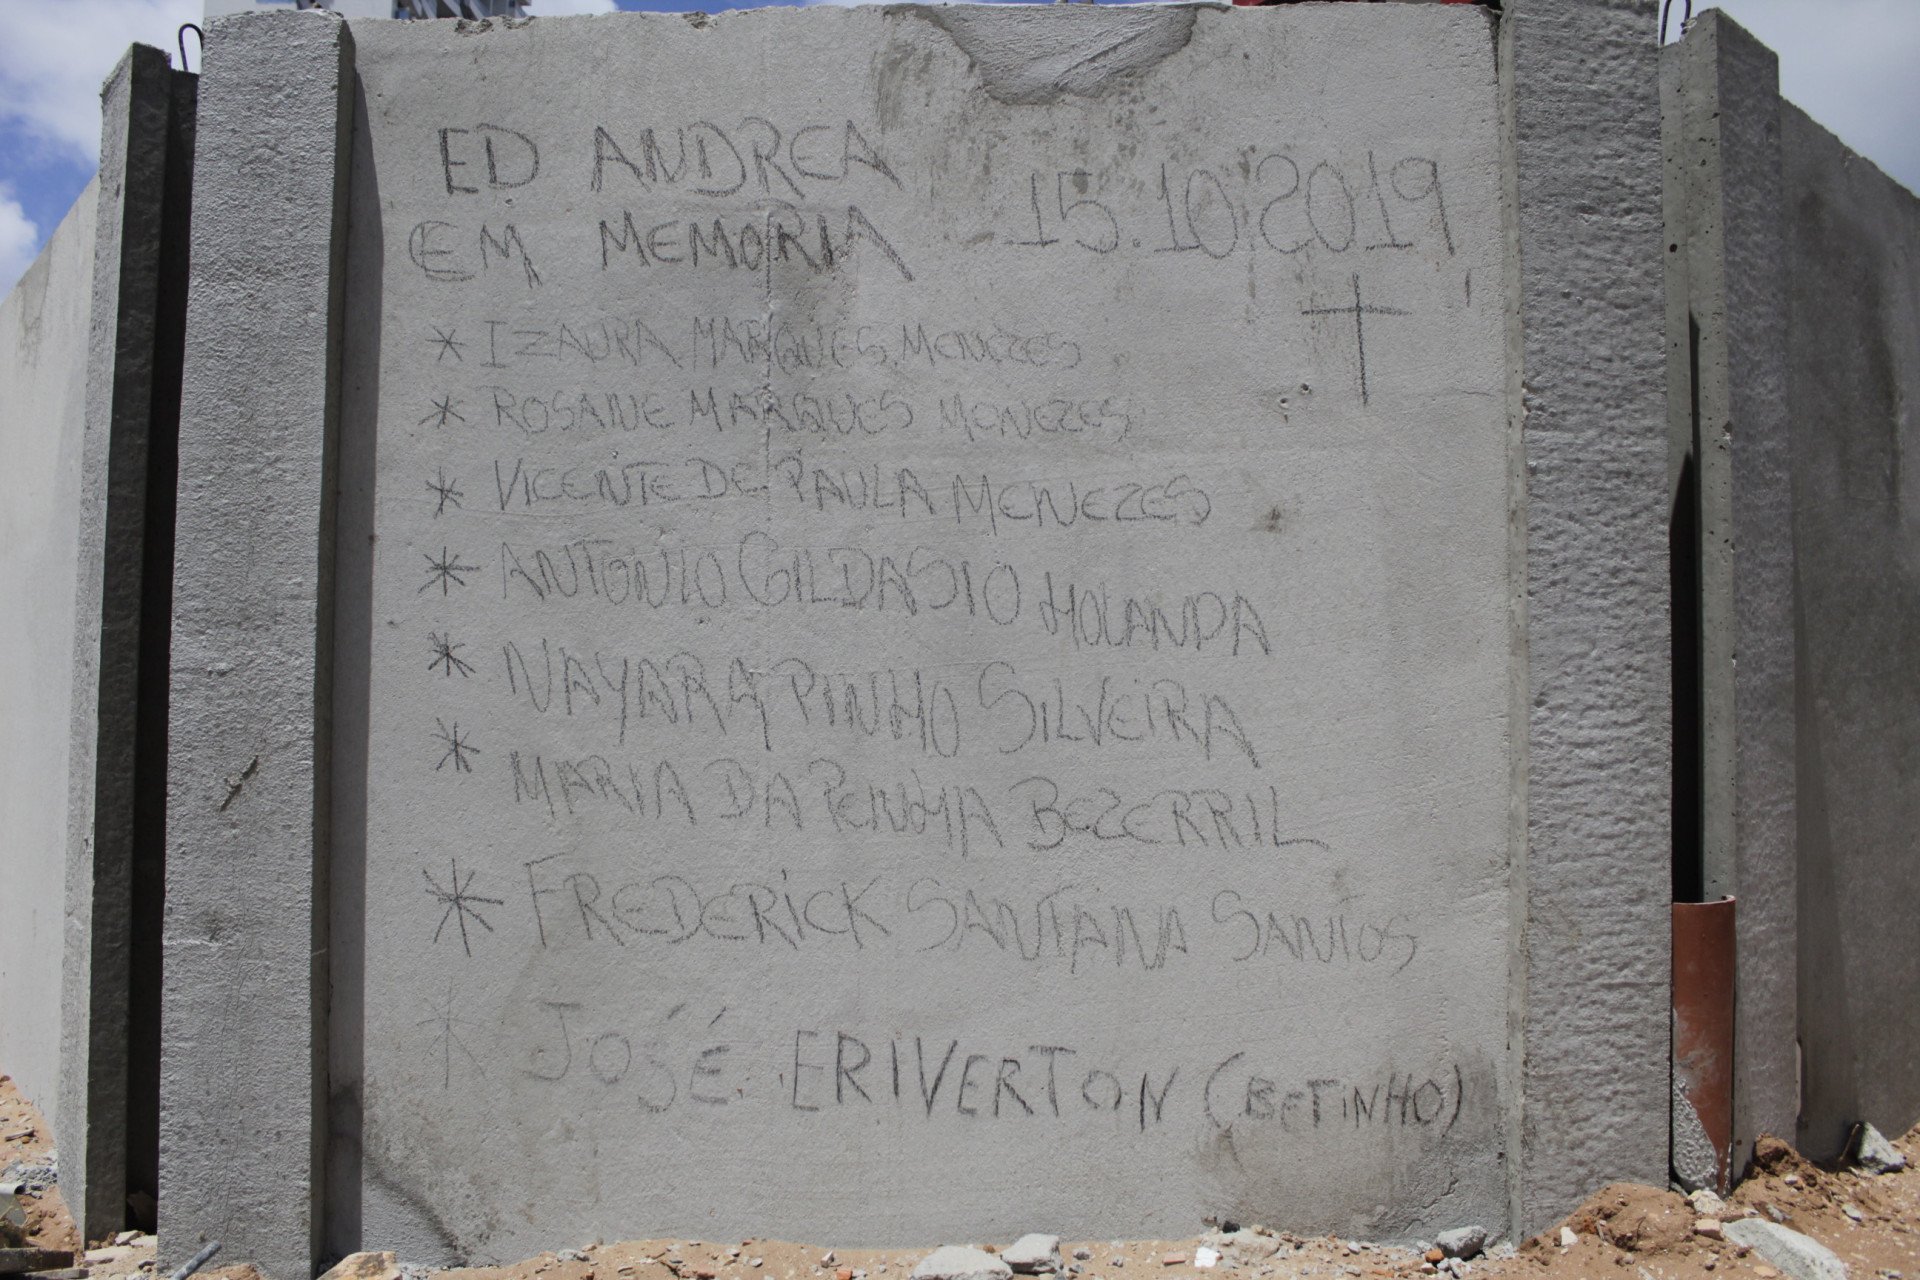 ED ANDREA
EM MEMORIA 15.10.2019
* IZAURA MARQUES MENEZES
* ROSANE MARQUES MENEZES
* VICENTE DE PAULA MENEZES
* ANTONIO GILDASIO HOLANDA
* NAYARA PINHO SILVEIRA
* MARIA DA PENHA BEZERRIL
* FREDERICK SANTANA SANTOS
* JOSÉ ERIVERTON (BETINHO)